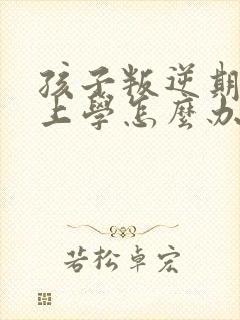 孩子叛逆期
上學怎麼办
若松卓宏